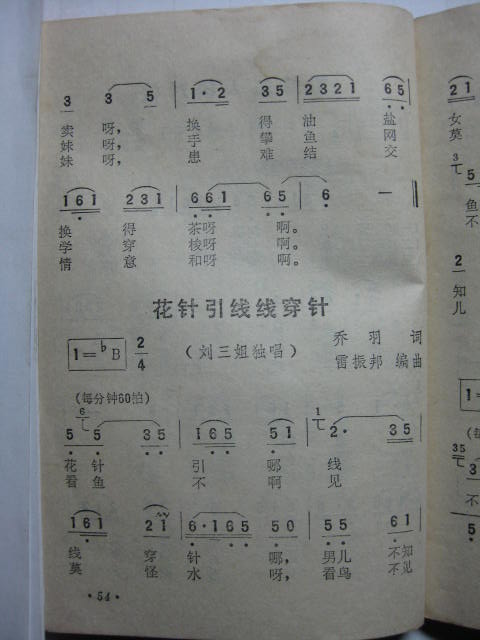 3 3 5 1·2 35 2321 65
卖 呀, 换 得 油 盐
妹 呀, 手 攀 鱼 网
妹 呀, 患 难 结 交
161 231 661 65 6 —
换 得 茶呀 啊。
学 穿 梭呀 啊。
情 意 和呀 啊。
花针引线线穿针
1=♭B 2/4
(刘三姐独唱)
乔 羽 词
雷振邦 编曲
(每分钟60拍)
6 1
5 5 35 165 51 2· 35
花 针 引 哪 线
看 鱼 不 啊 见
161 21 6·165 50 55 61
线 穿 针 哪, 男儿 不知
莫 怪 水 呀, 看鸟 不见
·54·
21
女
莫
3
5
鱼
不
2
知
儿
1=
35
3
不
5